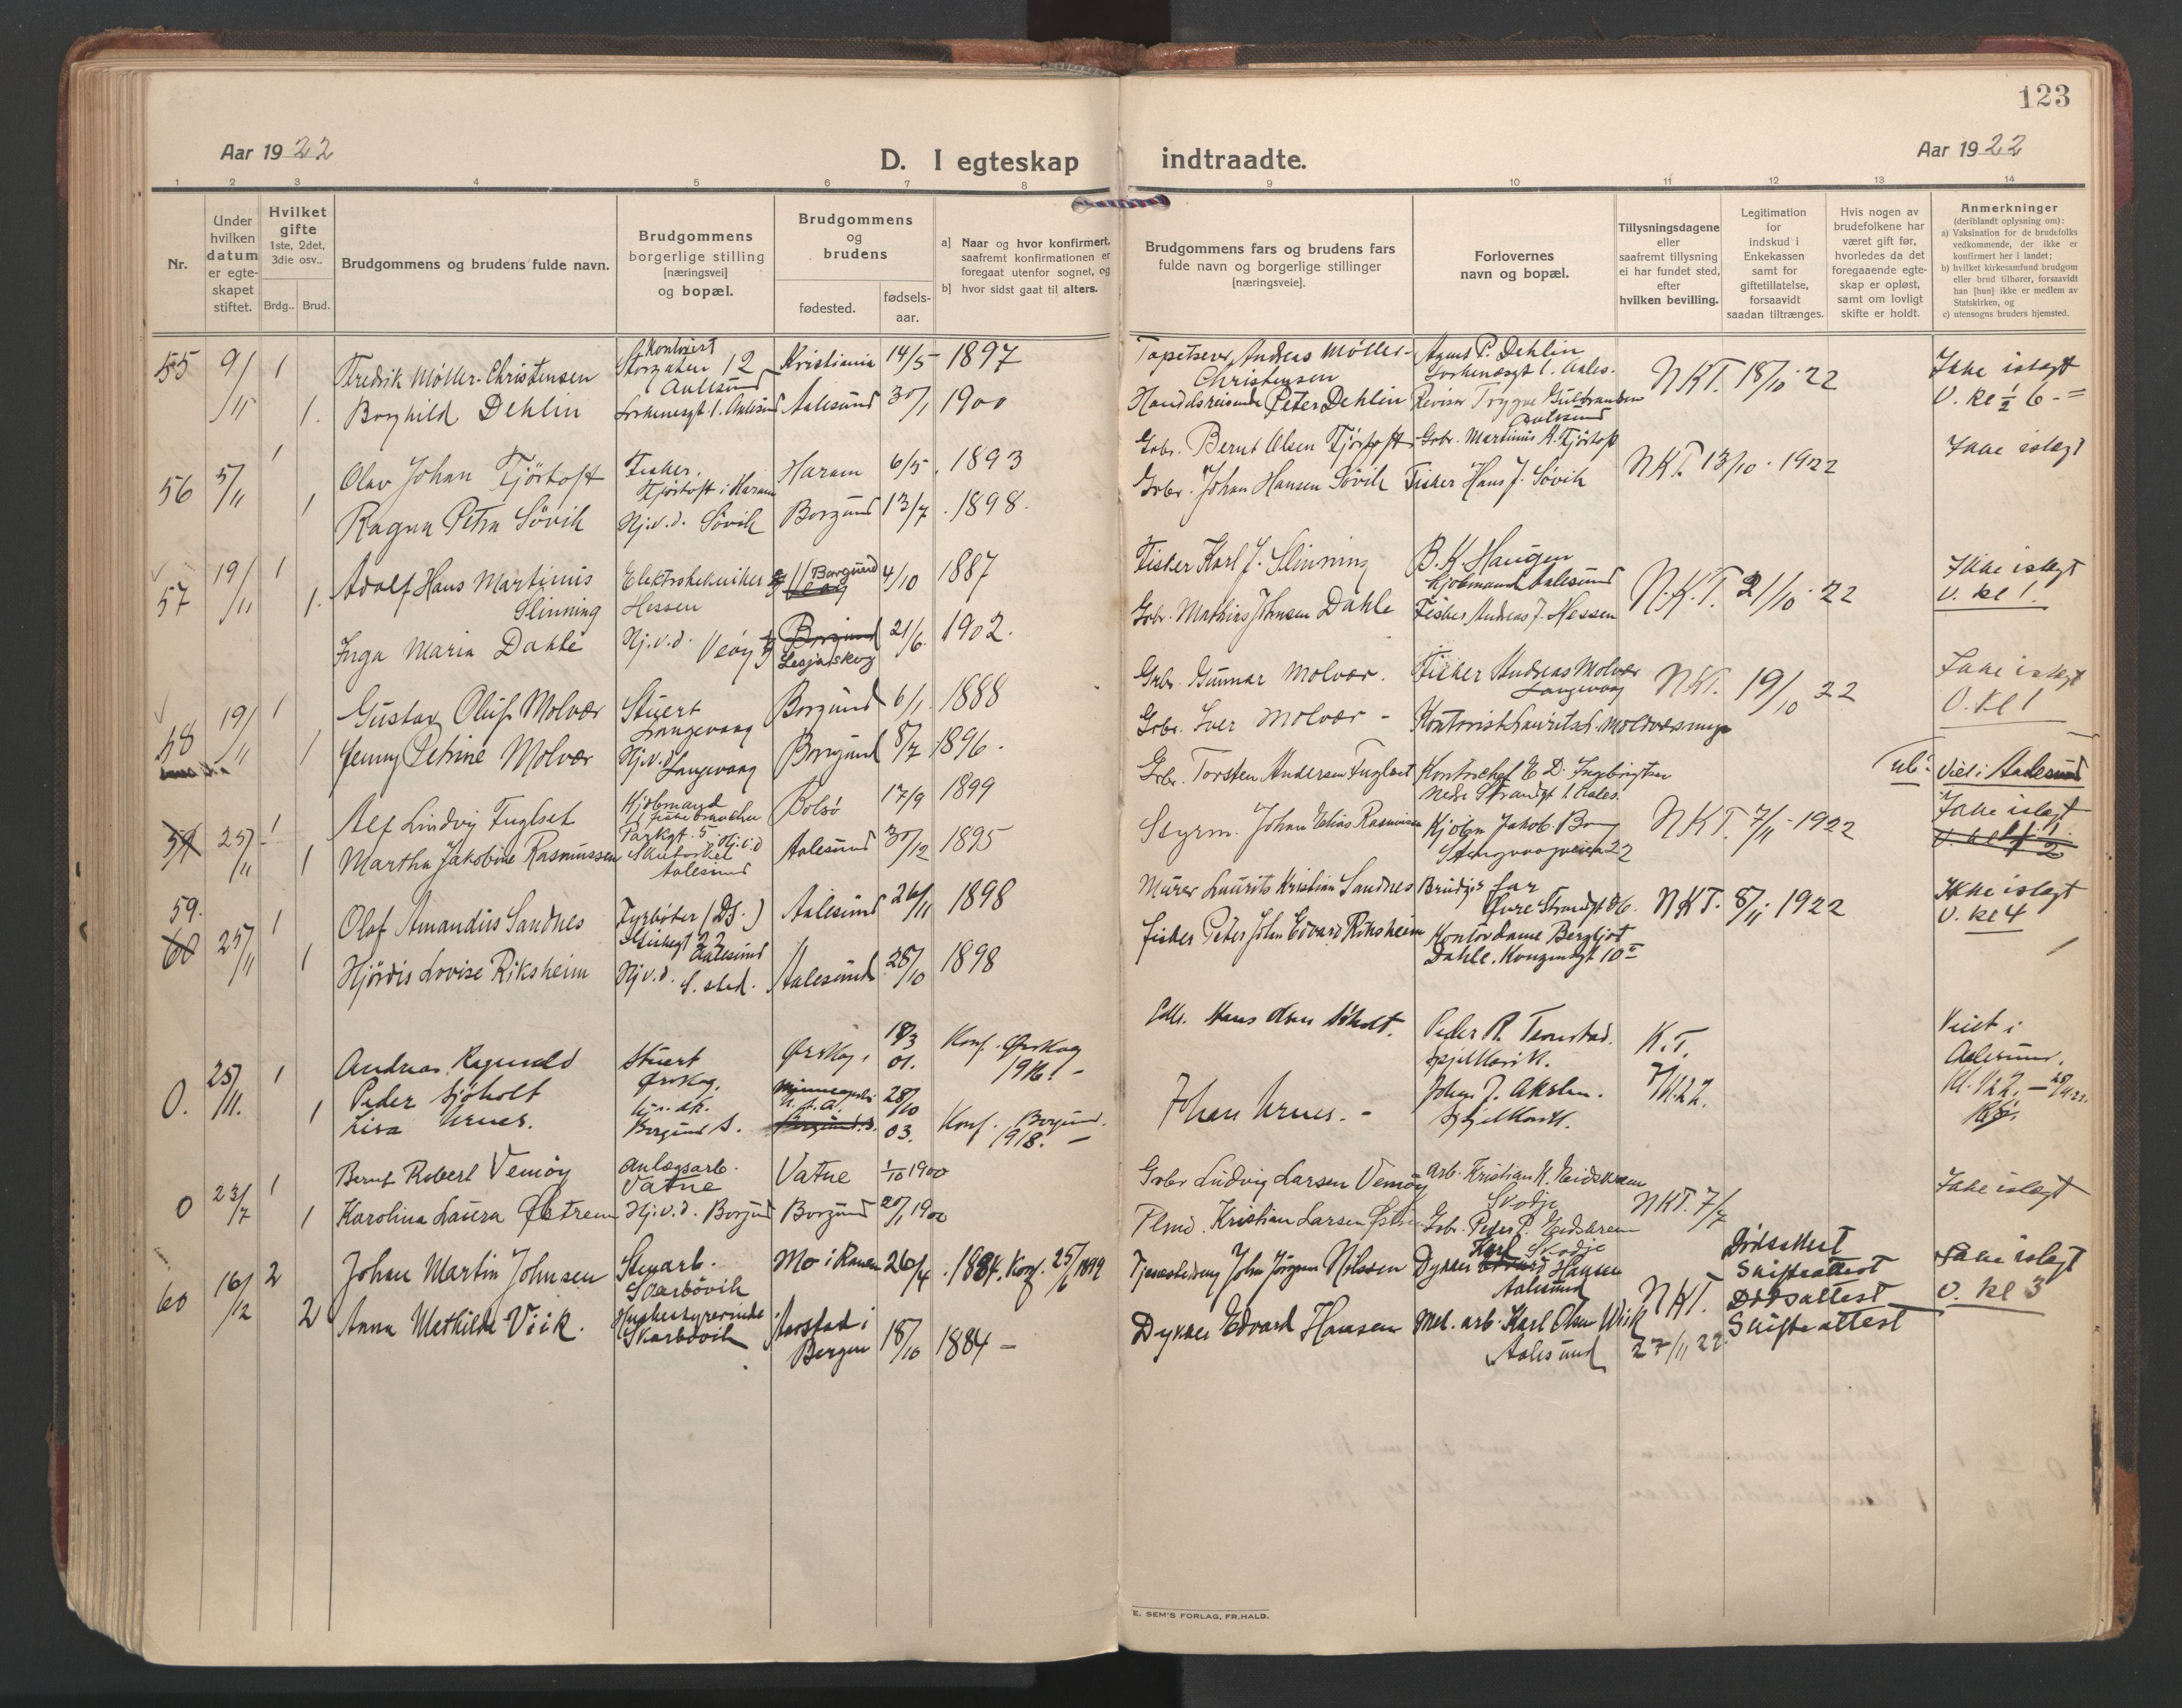 123
Aar 1922
D. I egteskap indtraadte.
Aar 1922
1 2 3 4 5 6 7 8 9 10 11 12 13 14
Nr.
Under hvilken datum er egte-skapet stiftet.
Hvilket gifte 1ste, 2det, 3die osv..
Brdg.. Brud.
Brudgommens og brudens fulde navn.
Brudgommens borgerlige stilling [næringsvei] og bopæl.
Brudgommens og brudens
fødested.
fødsels-aar.
a] Naar og hvor konfirmert, saafremt konfirmationen er foregaat utenfor sognet, og
b] hvor sidst gaat til alters.
Brudgommens fars og brudens fars fulde navn og borgerlige stillinger [næringsveie].
Forlovernes navn og bopæl.
Tillysningsdagene eller saafremt tillysning ei har fundet sted, efter hvilken bevilling.
Legitimation for indskud i Enkekassen samt for giftetillatelse, forsaavidt saadan tiltrænges.
Hvis nogen av brudefolkene har været gift før, hvorledes da det foregaaende egte-skap er opløst, samt om lovligt skifte er holdt.
Anmerkninger
(deriblandt oplysning om):
a) Vaksination for de brudefolks vedkommende, der ikke er konfirmert her i landet;
b) hvilket kirkesamfund brudgom eller brud tilhører, forsaavidt han [hun] ikke er medlem av Statskirken, og
c) utensogns bruders hjemsted.
55 9/11 1 Fredrik Møller-Christensen Kontorist Storgaten 12 Aalesund Kristiania 14/5 1897 Tapetserer Andreas Møller-Christensen Agnes P. Dehlin Aales. NKT. 18/10 22 Ikke i slegt
1. Borghild Dehlin Aalesund 30/1 1900 Handelsreisende Peter Dehlin Revisor Trygve Aalesund V. kl ½ 6
56 5/11 1 Olav Johan Fjørtoft Fisker. Fjørtoft i Haram Haram 6/5 1893 Grbr. Bernt Olsen Fjørtoft Grbr. Martinus A. Fjørtoft NKT. 13/10 1922 Ikke i slegt
1 Ragna Petra Søvik Hj.v.d. Søvik Borgund 13/7 1898. Grbr. Johan Hansen Søvik Fisker Hans J. Søvik
57 19/11 1 Adolf Hans Martinus Slinning Elektrotekniker Hessen Borgund 4/10 1887 Fisker Karl J. Slinning B. K. Haugen Kjøbmand Aalesund N.K.T. 21/10 22 Ikke i slegt
1. Inga Maria Dahle Hj.v.d. Veøy Borgund Lesjaskog 21/6 1902. Grbr. Mathias Johnsen Dahle Fisker Andreas J. Hessen V. kl 1.
58 19/11 1 Gustav Oluf Molvær Stuert Langevaag Borgund 6/1 1888 Grbr. Gunnar Molvær. Fisker Andreas Molvær Langevaag NKT. 19/10 22 Ikke i slegt
1 Jenny Petrine Molvær Hj.v.d. Langevaag Borgund 8/7 1896. Grbr. Iver Molvær - V. kl 1
59 25/11 1 Alf Lindvig Fuglset Kjøbmand Parkgt. 5 Bolsø 17/9 1899 Grbr. Torsten Andersen Fuglset Kontorchef E. D. Ingebrigtsen Nedre Strandgt 1 Aales. NKT. 7/11 1922 Viet i Aalesund
1 Martha Jakobine Rasmussen Hj.v.d. Aalesund Aalesund 30/12 1895 Styrm. Johan Elias Rasmussen Kjøbm Jakob Ikke i slegt
59. 60 25/11 1 Olaf Amandus Sandnes Fyrbøter (DS.) Aalesund Aalesund 26/11 1898 Murer Laurits Kristian Sandnes Brudgs far Øvre Strandgt 86. NKT. 8/11 1922 Ikke i slegt
1 Hjørdis Lovise Riksheim Hj.v.d. S. sted. Aalesund 28/10 1898 Fisker Peter Johan Edvard Riksheim Kontordame Bergljot Dahle. Kongensgt 10 V. kl 4
0. 25/11. 1 Andreas Ragnvald Peder Sjøholt Stuert Ørskog. Ørskog. 18/3 01. Konf. Ørskog 1916. - Hans Olsen Sjøholt. Peder R. Spjelkavik. K.T. 7/11.22. Viet i Aalesund.
1 Lisa Urnes. Borgund S. Minneapolis U.S.A. 28/10 03. Konf. Borgund. 1918. - Johan Urnes. - Johan J. Spjelkavik.
0 23/7 1 Bernt Robert Vemøy Anlægsarb. Vatne Vatne 1/10 1900 Grbr Ludvig Larsen Vemøy Arb. Kristian K. Skodje NKT. 7/7 Ikke i slegt
1 Karolina Laura Østrem Hj.v.d. Borgund Borgund 20/1 1900 Kristian Larsen Grbr. Peder P. Skodje
60 16/12 2 Johan Martin Johnsen Stenarb. Skarbøvik Mo i Ranen 26/4 1884, Konf. 25/6 1899 John Jørgen Nilssen Dykker Karl Edvard Hansen Aalesund NKT. 27/11 22. Dødsattest Skifteattest Ikke i slegt
2 Anna Mathilde Viik. Husbestyrerinde Skarbøvik Aarstad i Bergen 18/10 1884 - Dykker Edvard Hansen Mek. arb. Karl Olsen Wiik Aalesund Dødsattest Skifteattest V. kl 3
E. SEM'S FORLAG, FR.HALD.